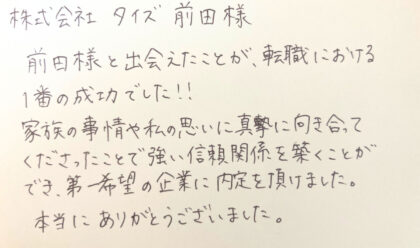 株式会社 タイズ 前田様
前田様と出会えたことが、転職における
1番の成功でした!!
家族の事情や私の思いに真摯に向き合って
くださったことで強い信頼関係を築くことが
でき、第一希望の企業に内定を頂けました。
本当にありがとうございました。